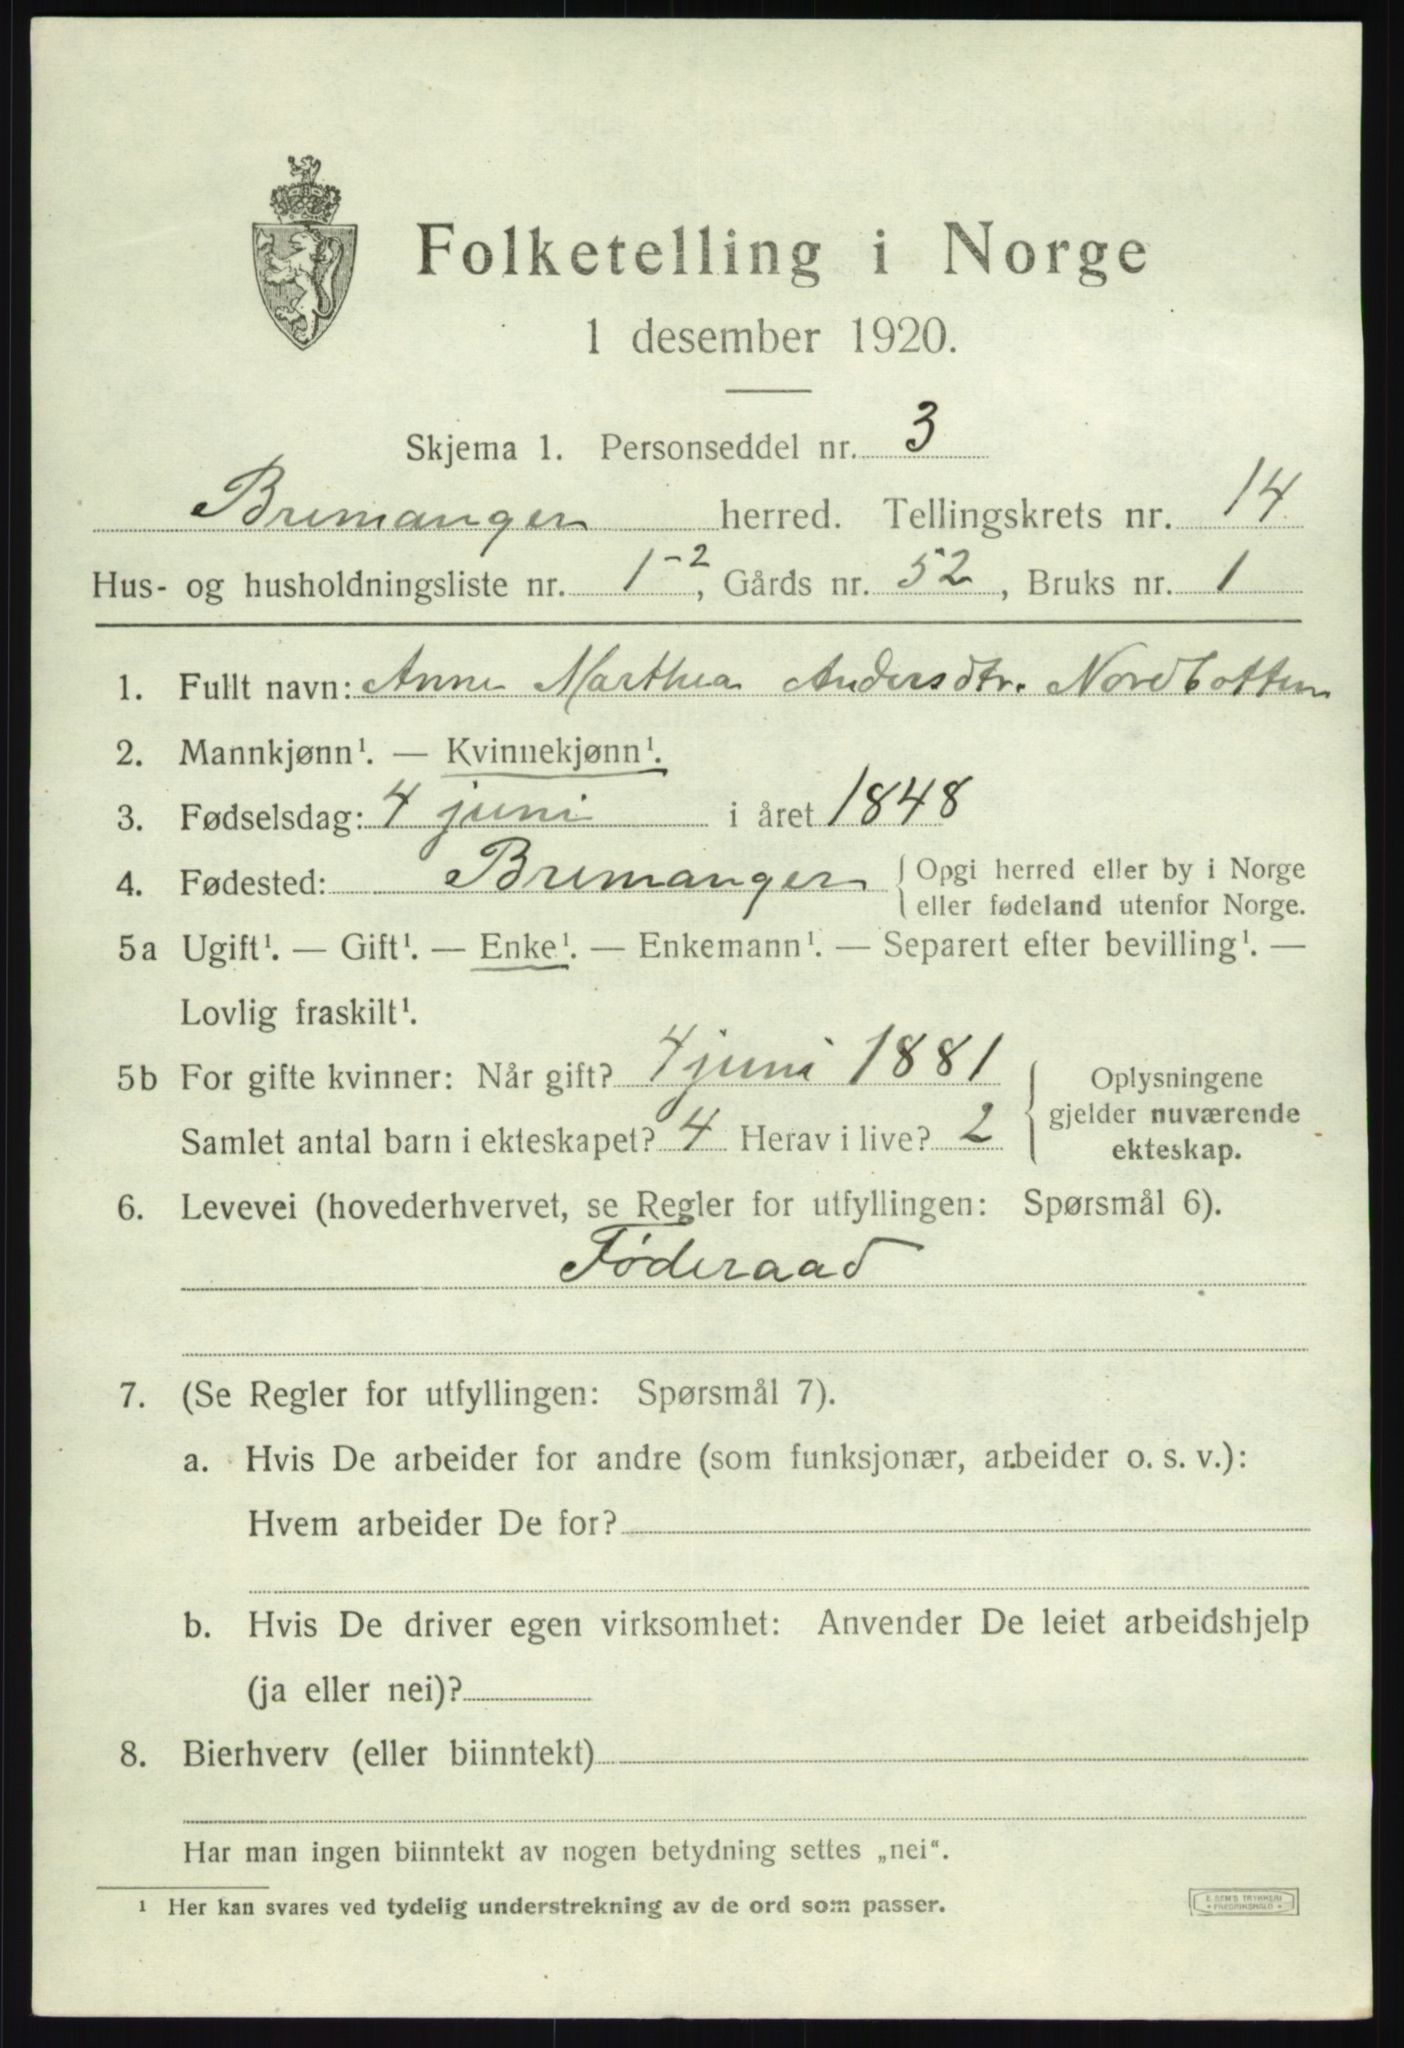 Folketelling i Norge
1 desember 1920.
Skjema 1. Personseddel nr. 3
Bremanger herred. Tellingskrets nr. 14
Hus- og husholdningsliste nr. 1-2, Gårds nr. 52, Bruks nr. 1
1. Fullt navn: Anne Marthea Andersdtr. Nordbotten
2. Mannkjønn¹. — Kvinnekjønn¹.
3. Fødselsdag: 4 juni i året 1848
4. Fødested: Bremanger { Opgi herred eller by i Norge
eller fødeland utenfor Norge.
5a Ugift¹. — Gift¹. — Enke¹. — Enkemann¹. — Separert efter bevilling¹. —
Lovlig fraskilt¹.
5b For gifte kvinner: Når gift? 4 juni 1881
Samlet antal barn i ekteskapet? 4 Herav i live? 2
Oplysningene
gjelder nuværende
ekteskap.
6. Levevei (hovederhvervet, se Regler for utfyllingen: Spørsmål 6).
Føderaad
7. (Se Regler for utfyllingen: Spørsmål 7).
a. Hvis De arbeider for andre (som funksjonær, arbeider o. s. v.):
Hvem arbeider De for?
b. Hvis De driver egen virksomhet: Anvender De leiet arbeidshjelp
(ja eller nei)?
8. Bierhverv (eller biinntekt)
Har man ingen biinntekt av nogen betydning settes „nei“.
¹ Her kan svares ved tydelig understrekning av de ord som passer.
E. SEM'S TRYKKERI
FREDRIKSHALD